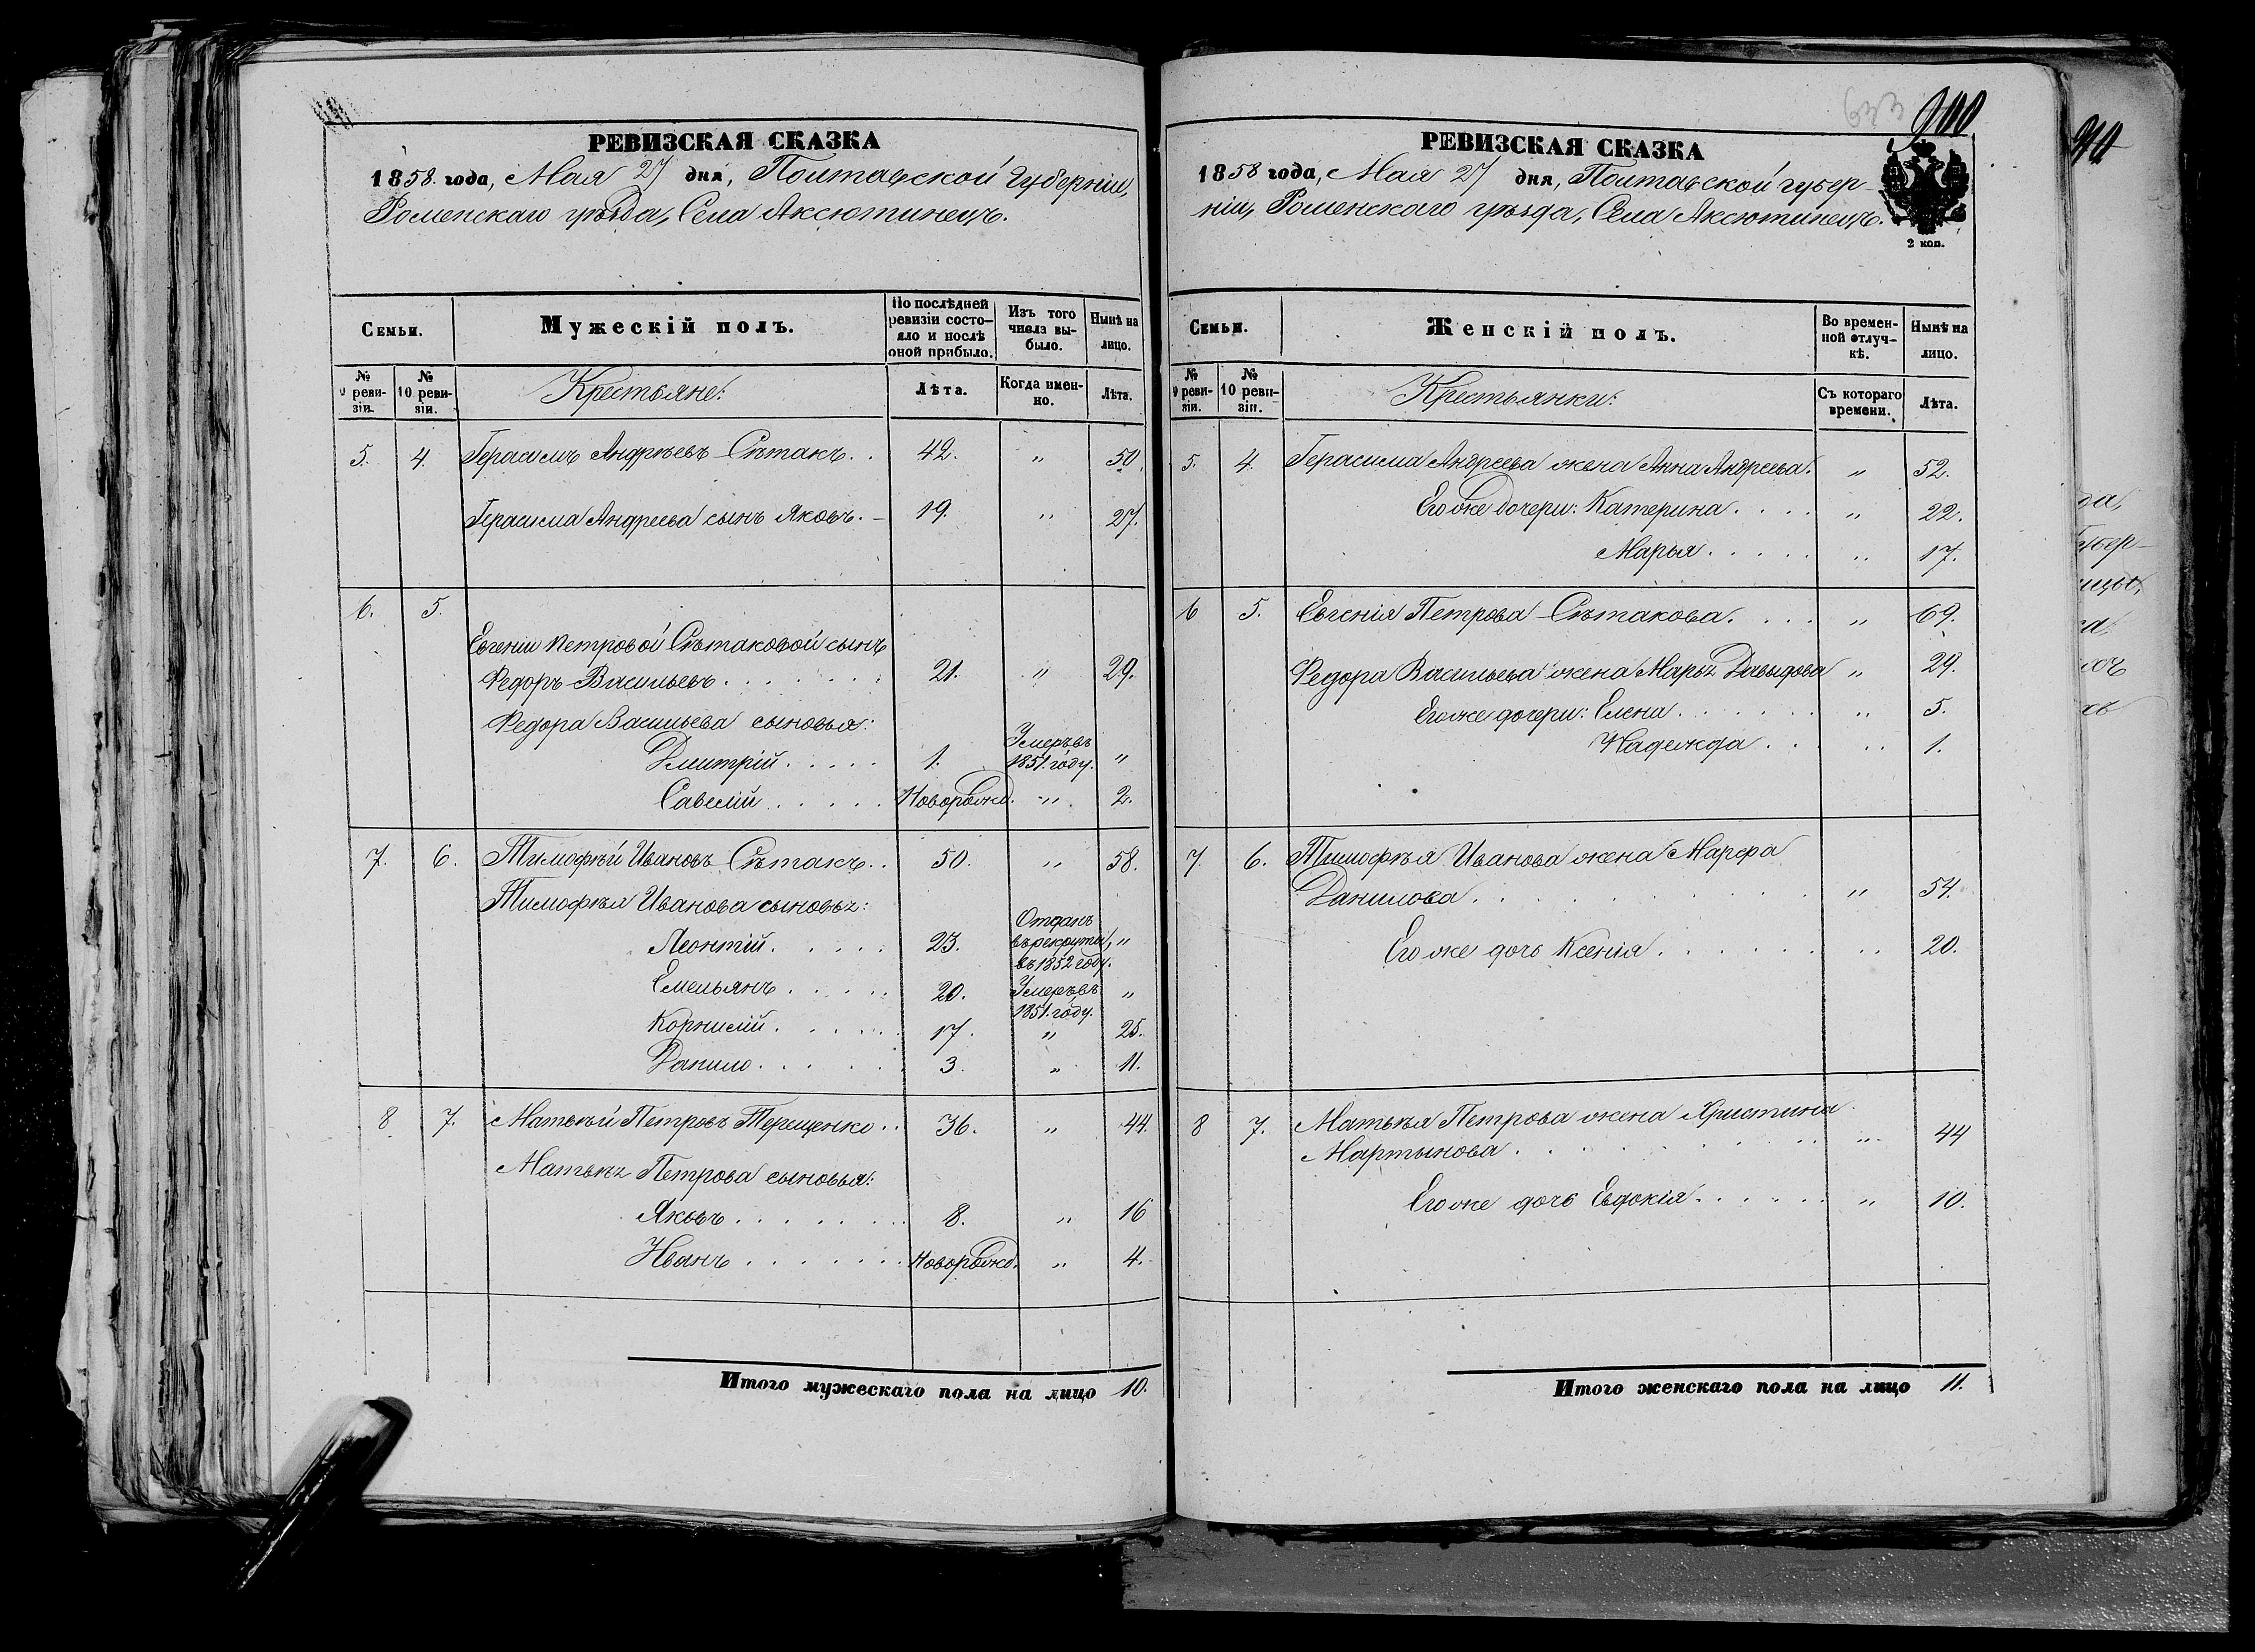 РЕВИЗСКАЯ СКАЗКА
1858 года, Мая 27 дня, Полтавской Губерніи,
Роменскаго уѣзда, Села Аксютинецъ.
Семьи.
Мужескій полъ.
По послѣдней ревизіи состояло и послѣ оной прибыло.
Изъ того числа выбыло.
Нынѣ на лицо.
№ 9 ревизіи.
№ 10 ревизіи.
Крестьяне:
Лѣта.
Когда именно.
Лѣта.
5. 4. Герасимъ Андреевъ Сѣтакъ.. 42. " 50.
Герасима Андреева сынъ Яковъ. 19. " 27.
6. 5.
Евгеніи Петровой Сѣтаковой сынъ
Федоръ Васильевъ...... 21. " 29.
Федора Васильева сыновья:
Дмитрій..... 1. Умеръ въ 1851. году. "
Савелій..... Новорожд. " 2.
7. 6. Тимофѣй Ивановъ Сѣтакъ.. 50. " 58.
Тимофѣя Иванова сыновья:
Леонтій..... 23. Отданъ въ рекруты, въ 1852 году. "
Емельянъ..... 20. Умеръ въ 1851. году. "
Корнилій..... 17. " 25.
Данило...... 3. " 11.
8 7. Матвѣй Петровъ Терещенко.. 36. " 44.
Матвѣя Петрова сыновья:
Яковъ....... 8. " 16
Иванъ....... Новорожд. " 4.
Итого мужескаго пола на лицо 10.
633 900
РЕВИЗСКАЯ СКАЗКА
1858 года, Мая 27 дня, Полтавской губер-
ніи, Роменскаго уѣзда, Села Аксютинецъ.
2 коп.
Семьи.
Женскій полъ.
Во временной отлучкѣ.
Нынѣ на лицо.
№ 9 ревизіи.
№ 10 ревизіи.
Крестьянки:
Съ котораго времени.
Лѣта.
5. 4. Герасима Андреева жена Анна Андреева. " 52.
Его же дочери: Катерина.... " 22.
Марья..... " 17.
6 5. Евгенія Петрова Сѣтакова.... " 69.
Федора Васильева жена Марья Давыдова " 29.
Его же дочери: Елена...... " 5.
Надежда... " 1.
7. 6. Тимофѣя Иванова жена Марфа
Данилова......... " 54.
Его же дочь Ксенія...... " 20.
8 7. Матвѣя Петрова жена Христина
Мартынова........ " 44
Его же дочь Евдокія...... " 10.
Итого женскаго пола на лицо 11.